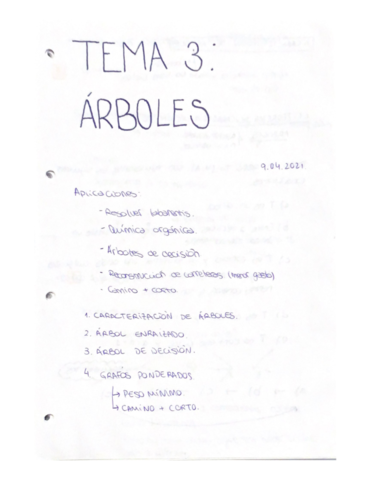 TEMA 3:
ÁRBOLES
9.04.2021
Aplicaciones:
- Resolver laberinto.
- Química orgánica
- Árboles de decisión
- Reconstrucción de carreteras (menor gasto)
- Camino + corto
1. CARACTERIZACIÓN DE ÁRBOLES.
2. ÁRBOL ENRAIZADO.
3. ÁRBOL DE DECISIÓN.
4. GRAFOS PONDERADOS
↳ PESO MÍNIMO
↳ CAMINO + CORTO.